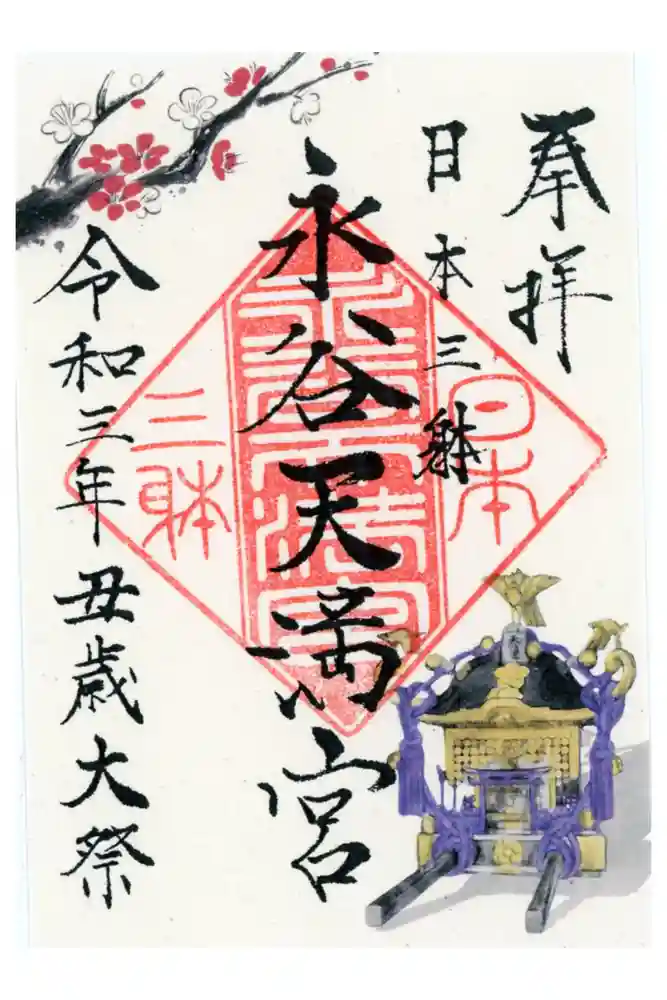 奉拝
日本三躰
永谷天満宮
令和三年丑歳大祭
日本
三躰
永谷天満宮